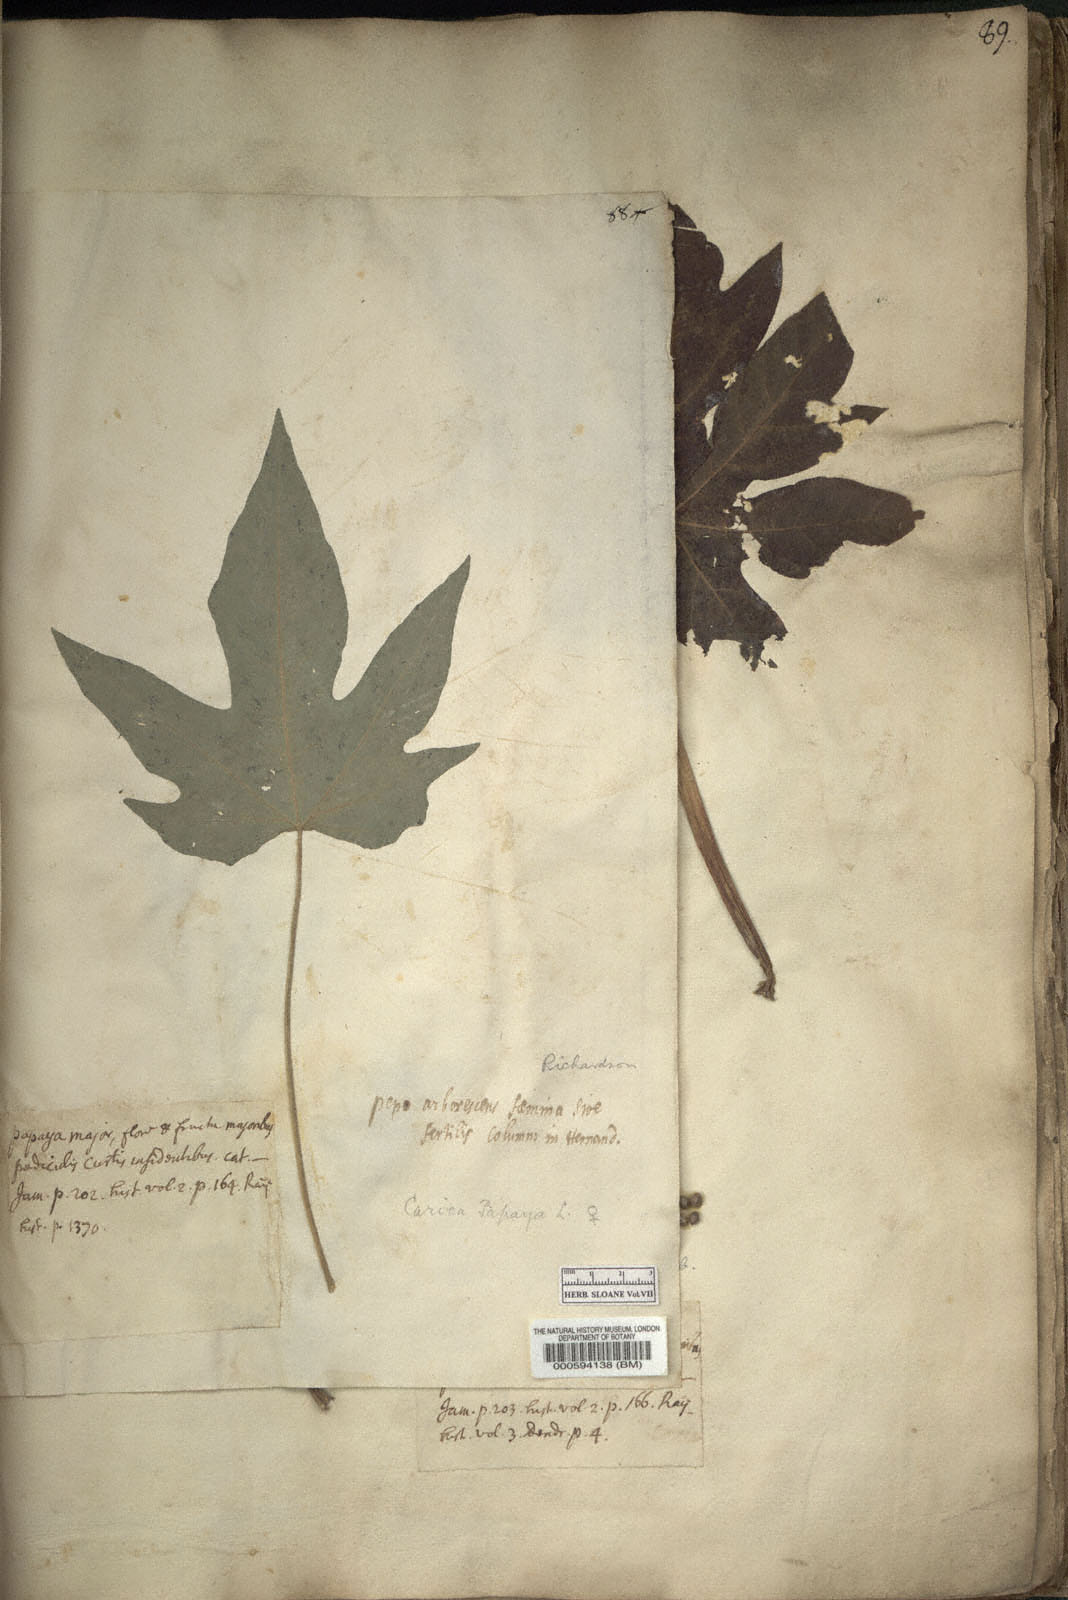 89.
88+
Richardson
pepo arborescens fæmina sive
fertilis Columnæ in Hernand.
papaya major, flore & fructu majoribus
pediculis curtis insidentibus. cat.
Jam. p. 202. hist. vol. 2. p. 164. Raij
hist. p. 1370.
Carica Papaya L. ♀
mm 1 2 3
HERB. SLOANE Vol: VII
THE NATURAL HISTORY MUSEUM, LONDON
DEPARTMENT OF BOTANY
000594138 (BM)
Jam. p. 203. hist. vol. 2. p. 166. Raij
hist. vol. 3. dendr. p. 4.